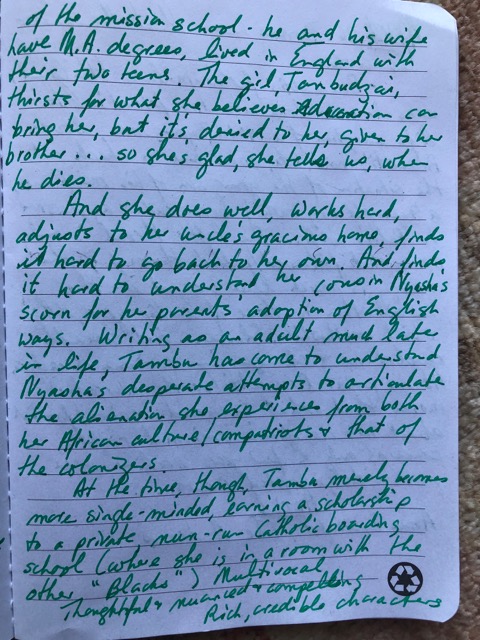 of the mission school - he and his wife
have M.A. degrees, lived in England with
their two teens. The girl, Tambudzai,
thirsts for what she believes Education can
bring her, but it's denied to her, given to her
brother... so she's glad, she tells us, when
he dies.
And she does well, works hard,
adjusts to her uncle's gracious home, finds
it hard to go back to her own. And finds
it hard to understand her cousin Nyasha's
scorn for her parents' adoption of English
ways. Writing as an adult much later
in life, Tambu has come to understand
Nyasha's desperate attempts to articulate
the alienation she experiences from both
her African culture/compatriots & that of
the colonizers.
At the time, though, Tambu merely becomes
more single-minded, earning a scholarship
to a private nun-run Catholic boarding
school (where she is in a room with the
other "Blacks") Multivocal
Thoughtful & nuanced & compelling
Rich, credible characters